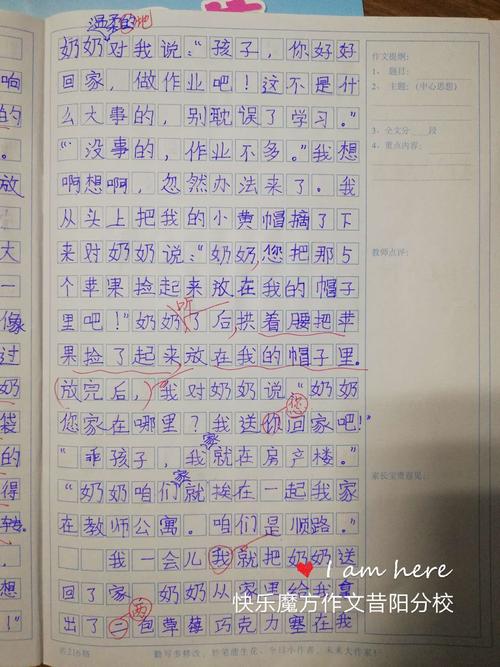 温柔的地
奶奶对我说:“孩子,你好好
回家,做作业吧!这不是什
么大事的,别耽误了学习。”
“没事的,作业不多。”我想
啊想啊,忽然办法来了。我
从头上把我的小黄帽摘了下
来对奶奶说:“奶奶,您把那5
个苹果捡起来放在我的帽子
里吧!”奶奶听了后拱着腰把苹
果捡了起来放在我的帽子里。
放完后,我对奶奶说“奶奶
您家在哪里?我送你您回家吧!”
“乖孩子,我家就在房产楼。”
“奶奶咱们家就挨在一起我家
在教师公寓。咱们是顺路。”
我一会儿我就把奶奶送
回了家 奶奶从家里给我拿
出了二两包草莓巧克力塞在我
共216格
勤写多修改,妙笔能生花,今日小作者,未来大作家!
作文提纲:
1、题目:
2、主题:(中心思想)
3、全文分 段
4、重点内容:
教师点评:
家长宝贵意见:
响
的
。
放
大
一
像
过
奶
袋
的
得
想
!”
I am here
快乐魔方作文昔阳分校